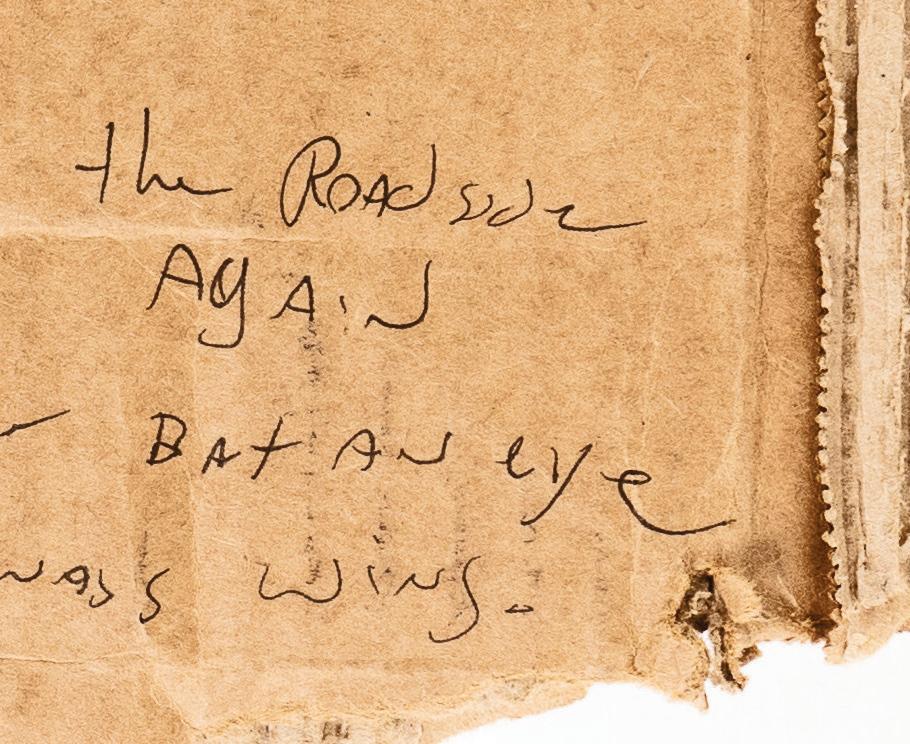 the ROAdside
AgAiN
BAt AN eye
wins.